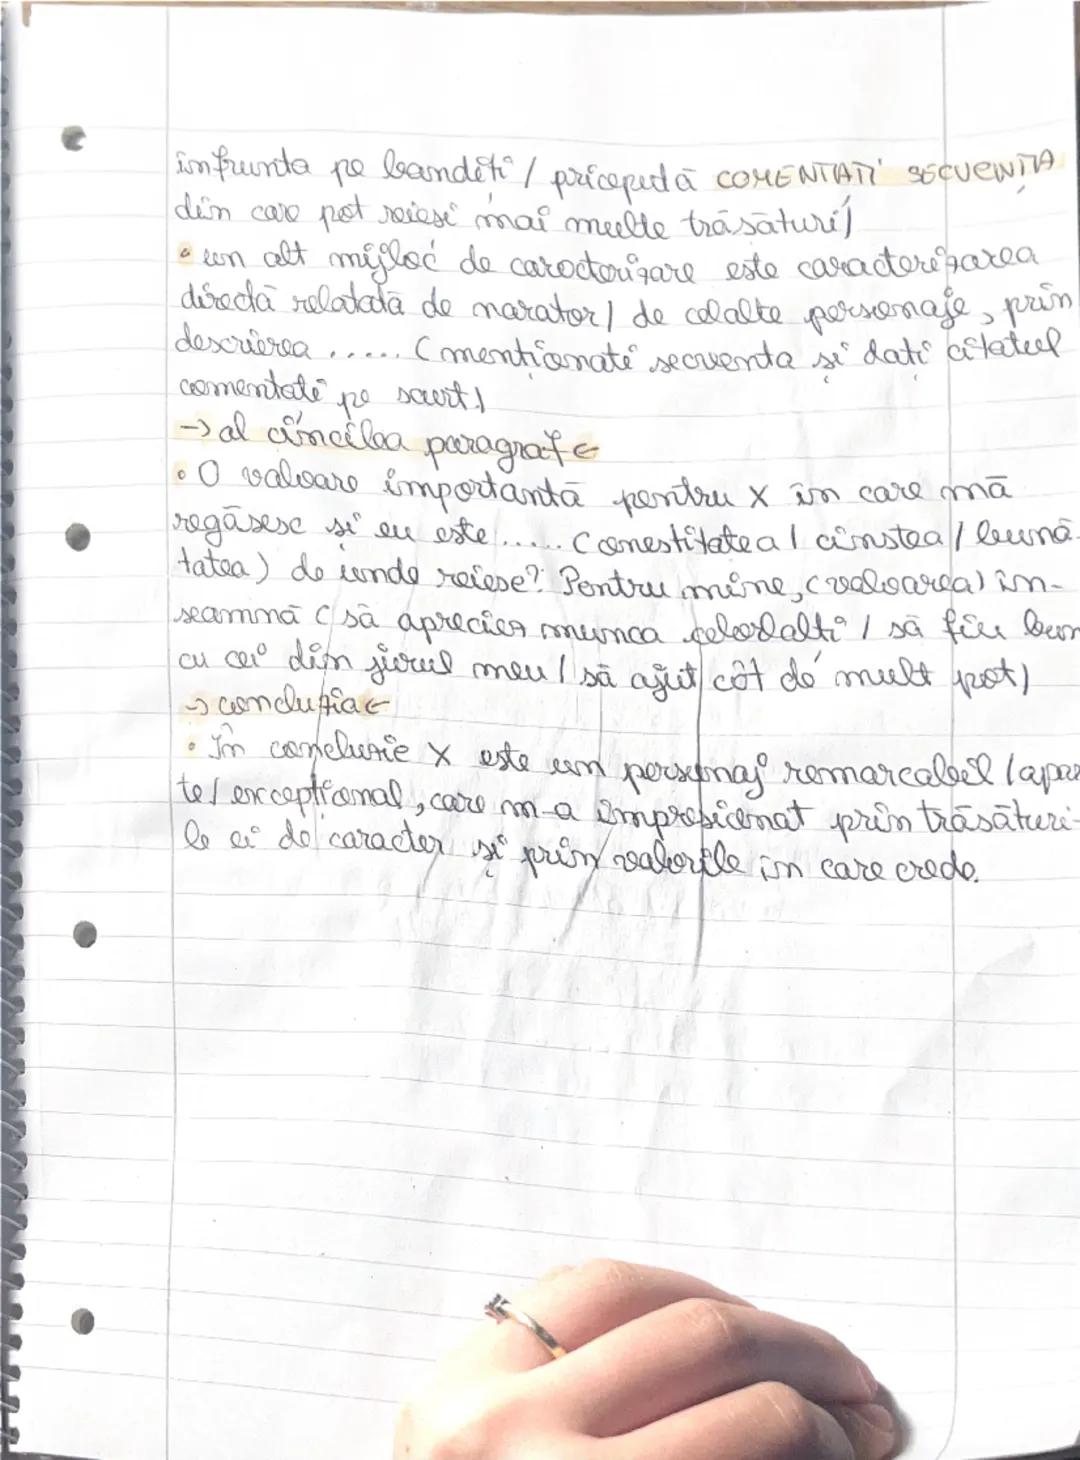 înfrunta pe bandiți / pricepută COMENTAȚI SECVENȚA
din care pot reiesi mai multe trăsături)
• un alt mijloc de caracterizare este caracterizarea
directă relatată de narator / de celalte personaje, prin
descrierea ..... (menționați secvența și dați citatul
comentati pe scurt)
→ al cincilea paragraf ←
• O valoare importantă pentru X în care mă
regăsesc și eu este ..... (onestitatea / cinstea / bună-
tatea) de unde reiese? Pentru mine, (valoarea) în-
seamnă (să apreciez munca celorlalți / să fiu bun
cu cei din jurul meu / să ajut cât de mult pot)
→ concluzia ←
• În concluzie X este un personaj remarcabil / apar
te / excepțional, care m-a impresionat prin trăsături-
le ei de caracter și prin valorile în care crede.